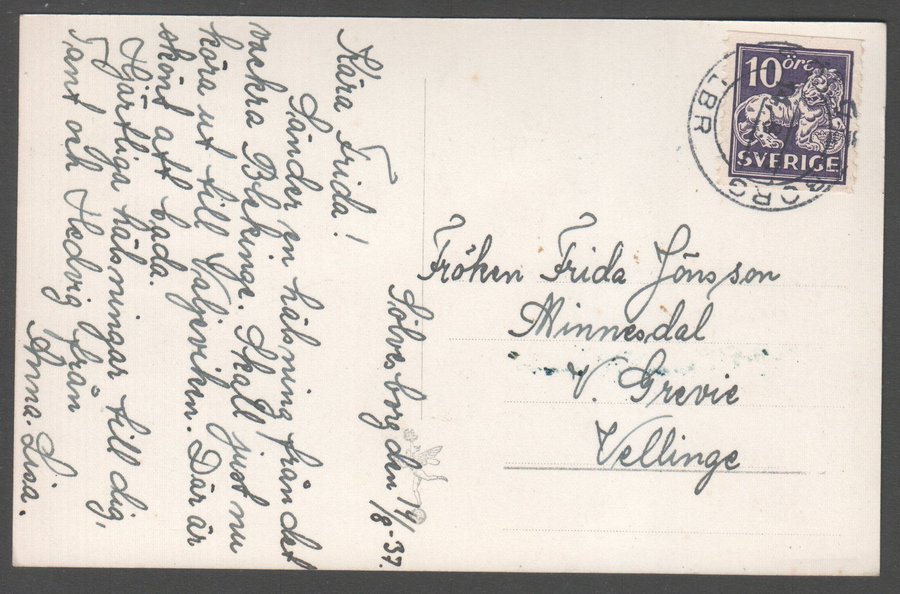 Sölvesborg den 14/8-37.
Kära Frida!
Sänder en hälsning från det
vackra Blekinge. Skall just nu
köra ut till Valjeviken. Där är
skönt att bada.
Hjärtliga hälsningar till dig,
Tant och Hedvig från
Anna-Lisa.
10 öre
SVERIGE
LBR
ORG
Fröken Frida Jönsson
Minnesdal
V. Grevie
Vellinge